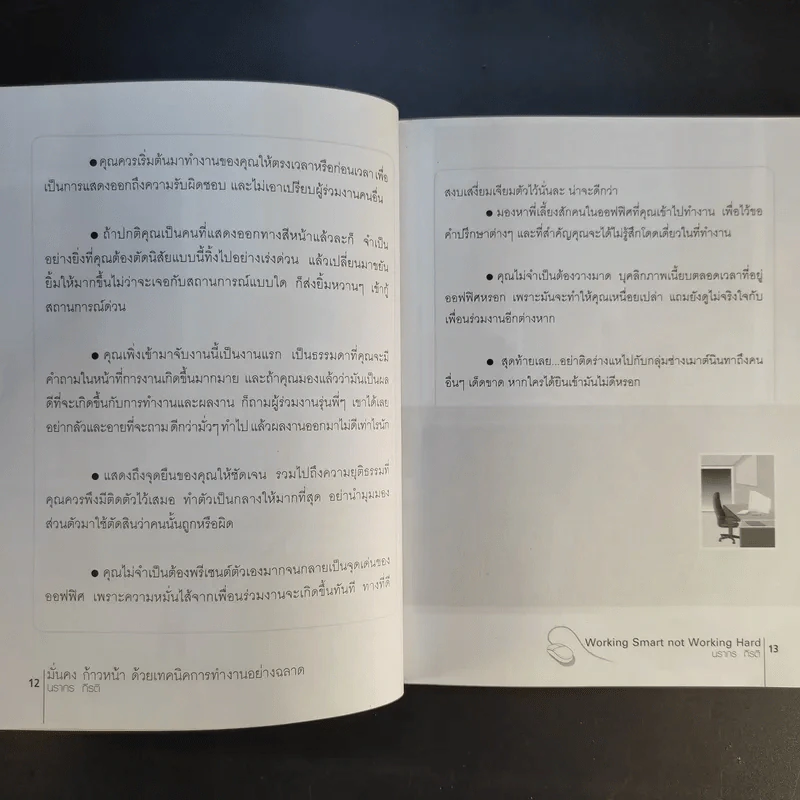 ● คุณควรเริ่มต้นมาทำงานของคุณให้ตรงเวลาหรือก่อนเวลา เพื่อ
เป็นการแสดงออกถึงความรับผิดชอบ และไม่เอาเปรียบผู้ร่วมงานคนอื่น
● ถ้าปกติคุณเป็นคนที่แสดงออกทางสีหน้าแล้วละก็ จำเป็น
อย่างยิ่งที่คุณต้องตัดนิสัยแบบนี้ทิ้งไปอย่างเร่งด่วน แล้วเปลี่ยนมาขยัน
ยิ้มให้มากขึ้นไม่ว่าจะเจอกับสถานการณ์แบบใด ก็ส่งยิ้มหวานๆ เข้ากู้
สถานการณ์ด่วน
● คุณเพิ่งเข้ามาจับงานนี้เป็นงานแรก เป็นธรรมดาที่คุณจะมี
คำถามในหน้าที่การงานเกิดขึ้นมากมาย และถ้าคุณมองแล้วว่ามันเป็นผล
ดีที่จะเกิดขึ้นกับการทำงานและผลงาน ก็ถามผู้ร่วมงานรุ่นพี่ๆ เขาได้เลย
อย่ากลัวและอายที่จะถาม ดีกว่ามั่วๆ ทำไป แล้วผลงานออกมาไม่ดีเท่าไรนัก
● แสดงถึงจุดยืนของคุณให้ชัดเจน รวมไปถึงความยุติธรรมที่
คุณควรพึงมีติดตัวไว้เสมอ ทำตัวเป็นกลางให้มากที่สุด อย่านำมุมมอง
ส่วนตัวมาใช้ตัดสินว่าคนนั้นถูกหรือผิด
● คุณไม่จำเป็นต้องพรีเซนต์ตัวเองมากจนกลายเป็นจุดเด่นของ
ออฟฟิศ เพราะความหมั่นไส้จากเพื่อนร่วมงานจะเกิดขึ้นทันที ทางที่ดี
12 มั่นคง ก้าวหน้า ด้วยเทคนิคการทำงานอย่างฉลาด
นรากร กีรติ
สงบเสงี่ยมเจียมตัวไว้นั่นละ น่าจะดีกว่า
● มองหาพี่เลี้ยงสักคนในออฟฟิศที่คุณเข้าไปทำงาน เพื่อไว้ขอ
คำปรึกษาต่างๆ และที่สำคัญคุณจะได้ไม่รู้สึกโดดเดี่ยวในที่ทำงาน
● คุณไม่จำเป็นต้องวางมาด บุคลิกภาพเนี้ยบตลอดเวลาที่อยู่
ออฟฟิศหรอก เพราะมันจะทำให้คุณเหนื่อยเปล่า แถมยังดูไม่จริงใจกับ
เพื่อนร่วมงานอีกต่างหาก
● สุดท้ายเลย...อย่าติดร่างแหไปกับกลุ่มช่างเมาต์นินทาถึงคน
อื่นๆ เด็ดขาด หากใครได้ยินเข้ามันไม่ดีหรอก
Working Smart not Working Hard 13
นรากร กีรติ